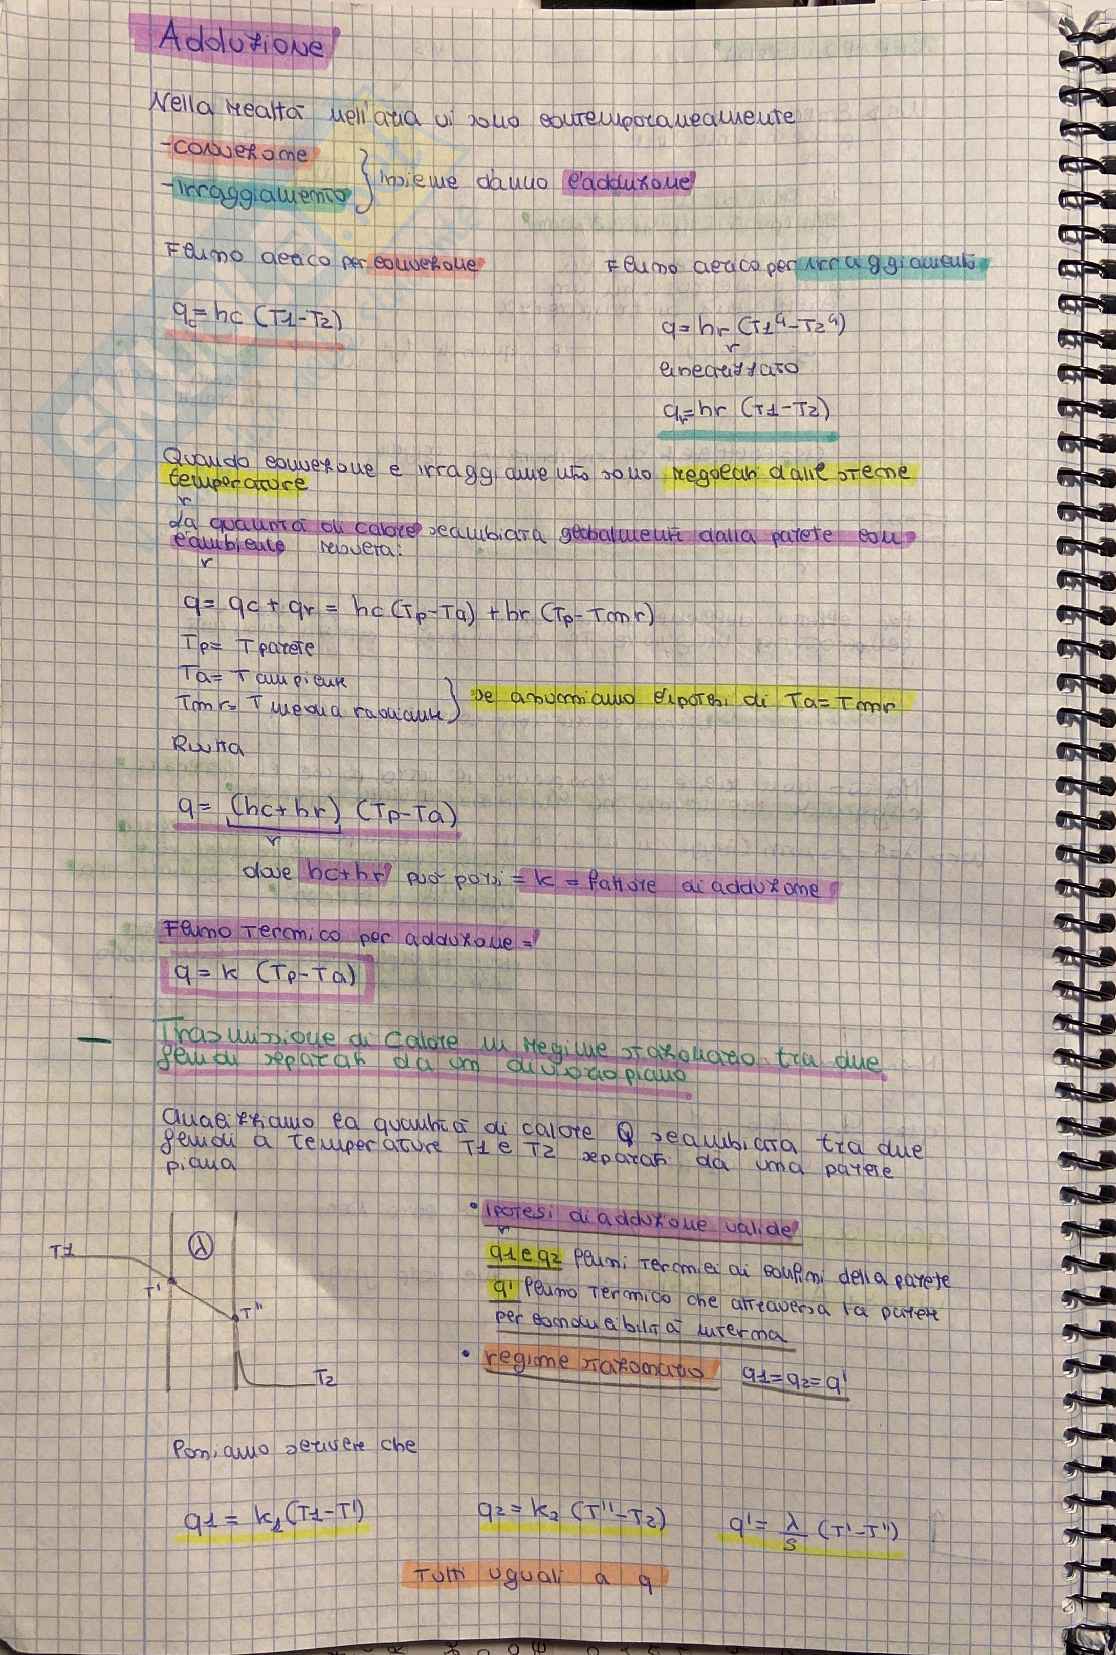 Adduzione
Nella realtà nell'aria vi sono contemporaneamente
-convezione
-irraggiamento } insieme danno l'adduzione
Flusso aerico per convezione
Flusso aerico per irraggiamento
qc=hc (T1-T2)
q=hr (T1⁴-T2⁴)
linearizzato
qr=hr (T1-T2)
Quando convezione e irraggiamento sono regolati dalle stesse
temperature
La quantità di calore scambiata globalmente dalla parete con
l'ambiente risulta:
q= qc+qr = hc(Tp-Ta) +hr (Tp-Tmr)
Tp= Tparete
Ta= T ambiente
Tmr= T media radiante } se assumiamo l'ipotesi di Ta=Tmr
Risulta
q= (hc+hr) (Tp-Ta)
dove hc+hr può porsi = k = fattore di adduzione
Flusso Termico per adduzione =
q= k (Tp-Ta)
- Trasmissione di Calore in regime stazionario tra due
fluidi separati da un divisorio piano
Analizziamo la quantità di calore Q scambiata tra due
fluidi a temperature T1 e T2 separati da una parete
piana
• ipotesi di adduzione valide
q1 e q2 flussi termici ai confini della parete
q' flusso termico che attraversa la parete
per conducibilità interna
• regime stazionario q1=q2=q'
T1
λ
T'
T"
T2
Possiamo scrivere che
q1= k1(T1-T')
q2= k2 (T"-T2)
q'= λ/s (T'-T")
Tutti uguali a q